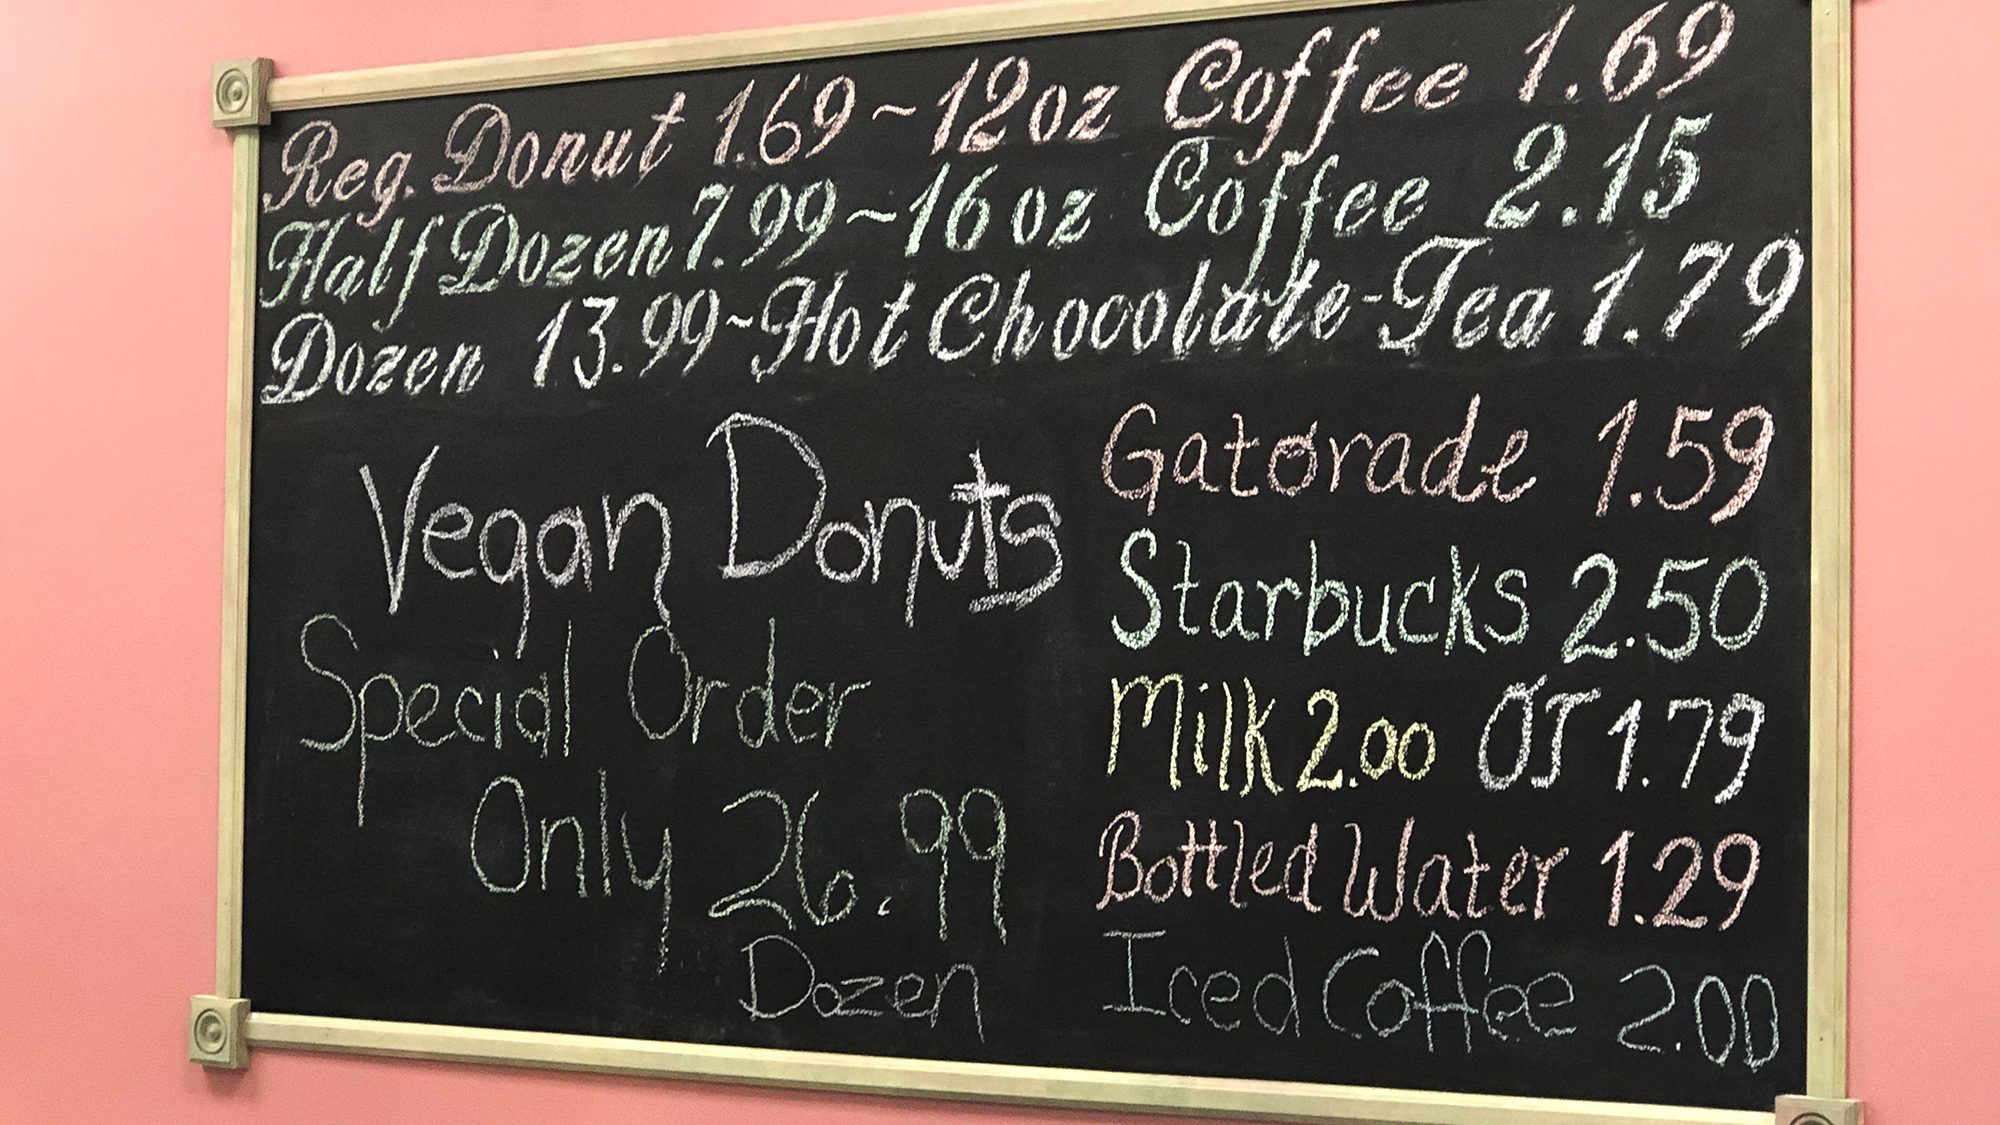 Reg. Donut 1.69~12oz Coffee 1.69
Half Dozen 7.99~16oz Coffee 2.15
Dozen 13.99~Hot Chocolate-Tea 1.79
Vegan Donuts
Special Order
Only 26.99
Dozen
Gatorade 1.59
Starbucks 2.50
Milk 2.00 OJ 1.79
Bottled Water 1.29
Iced Coffee 2.00